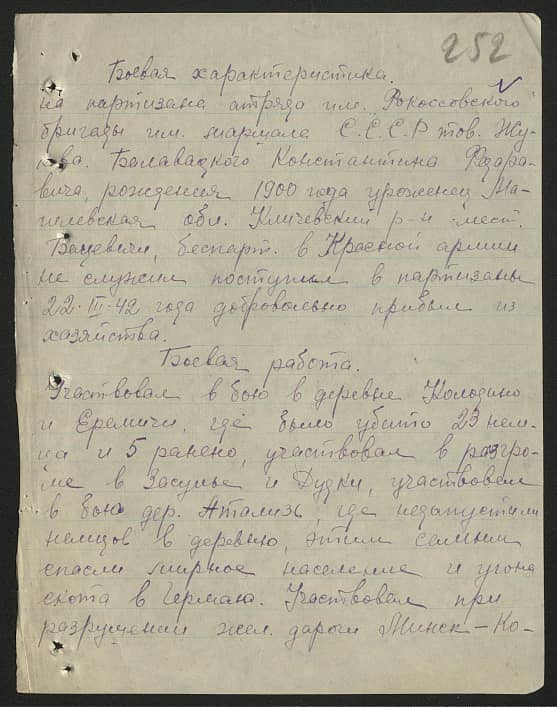 252
Боевая характеристика.
на партизана атряда им. Рокоссовского
бригады им. маршала С.С.С.Р тов. Жу-
кова. Балавацкого Константина Фадара-
вича, рождения 1900 года урожене́ц Ма-
гилевская обл. Кличевский р-н мест.
Бацевичи, беспарт. в Красной армии
не служил поступил в партизаны
22·III·42 года добровольно прибыл из
хазяйства.
Боевая работа.
Участвовал в бою в деревне Колодино
и Еремичи, где было убито 23 нем-
ца и 5 ранено, участвовал в разгро-
ме в Засулье и Дудки, участвовал
в бою дер. Атализь, где недапустили
немцов в деревню, этим самым
спасли мирное население и угона
скота в Германю. Участвовал при
разрушении жел. дароги Минск-Ко-